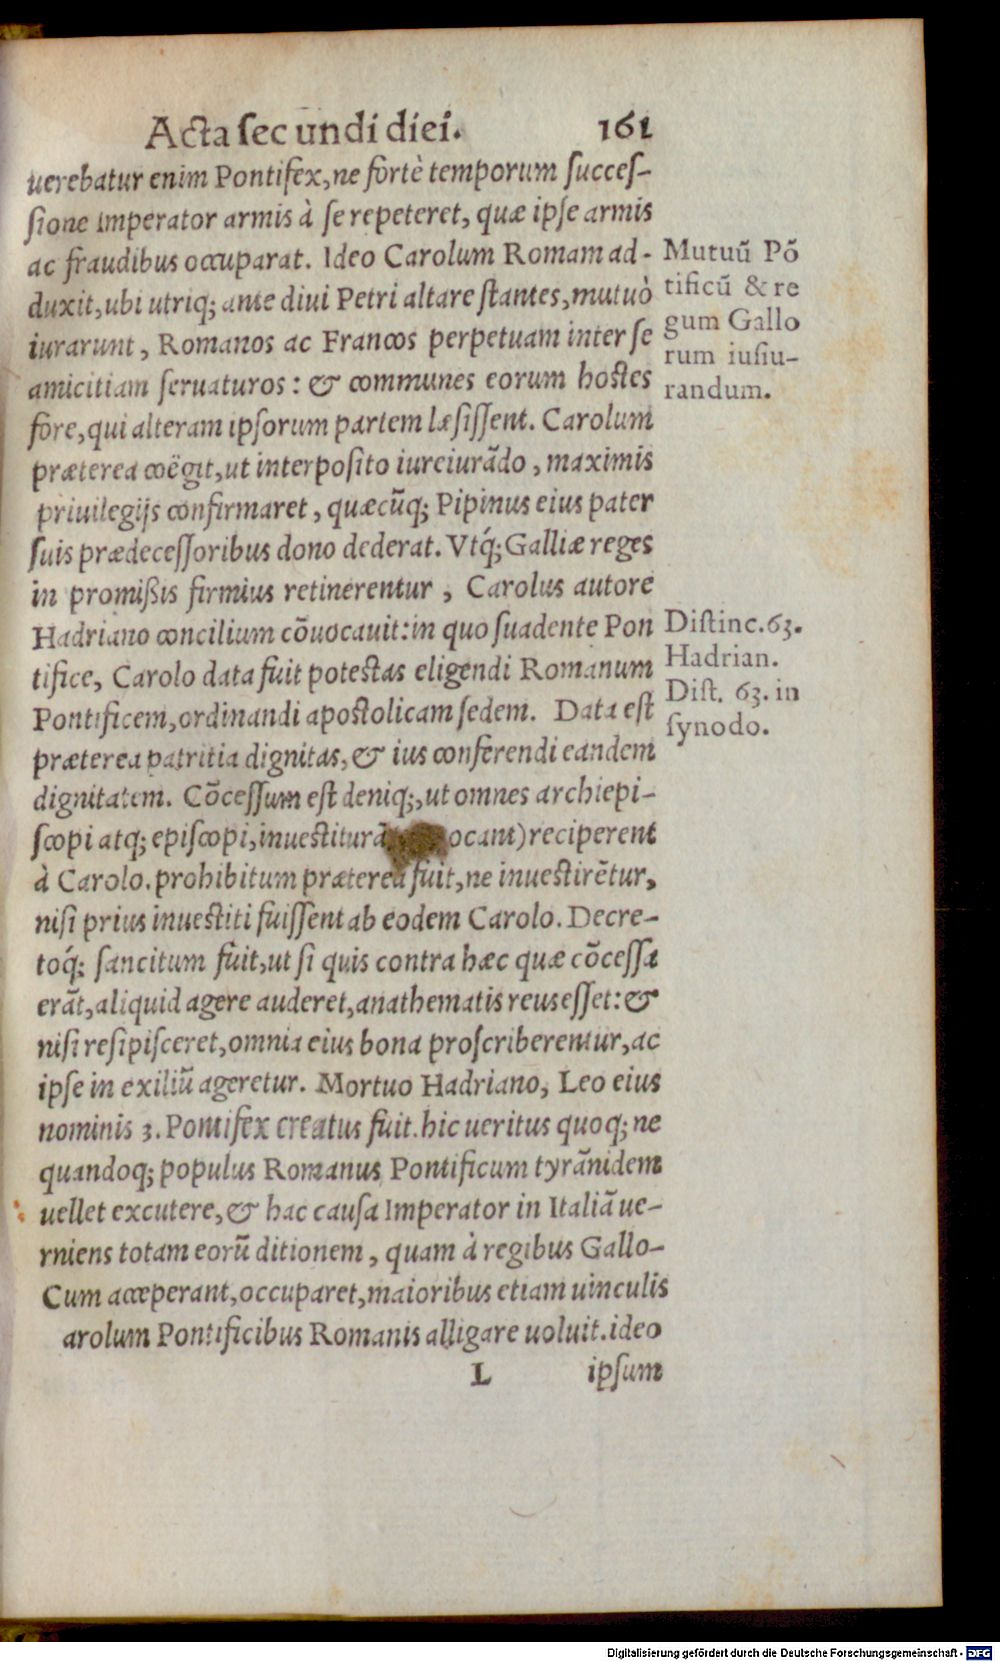 Acta secundi diei. 161
uerebatur enim Pontifex, ne fortè temporum succes-
sione Imperator armis à se repeteret, quæ ipse armis
ac fraudibus occuparat. Ideo Carolum Romam ad-
duxit, ubi utriq; ante diui Petri altare stantes, mutuò
iurarunt, Romanos ac Francos perpetuam inter se
amicitiam seruaturos: & communes eorum hostes
fore, qui alteram ipsorum partem læsissent. Carolum
præterea coëgit, ut interposito iureiurãdo, maximis
priuilegijs confirmaret, quæcũq; Pipinus eius pater
suis prædecessoribus dono dederat. Vtq́; Galliæ reges
in promißis firmius retinerentur, Carolus autore
Hadriano concilium cõuocauit: in quo suadente Pon
tifice, Carolo data fuit potestas eligendi Romanum
Pontificem, ordinandi apostolicam sedem. Data est
præterea patritia dignitas, & ius conferendi eandem
dignitatem. Cõcessum est deniq;, ut omnes archiepi-
scopi atq; episcopi, inuestiturã ocant) reciperent
à Carolo. prohibitum præterea fuit, ne inuestirẽtur,
nisi prius inuestiti fuissent ab eodem Carolo. Decre-
toq́; sancitum fuit, ut si quis contra hæc quæ cõcessa
erãt, aliquid agere auderet, anathematis reus esset: &
nisi resipisceret, omnia eius bona proscriberentur, ac
ipse in exiliũ ageretur. Mortuo Hadriano, Leo eius
nominis 3. Pontifex creatus fuit. hic ueritus quoq; ne
quandoq; populus Romanus Pontificum tyrãnidem
uellet excutere, & hac causa Imperator in Italiã ue-
rniens totam eorũ ditionem, quam à regibus Gallo-
Cum acceperant, occuparet, maioribus etiam uinculis
arolum Pontificibus Romanis alligare uoluit. ideo
L ipsum
Mutuũ Põ
tificũ & re
gum Gallo
rum iusiu-
randum.
Distinc. 63.
Hadrian.
Dist. 63. in
synodo.
Digitalisierung gefördert durch die Deutsche Forschungsgemeinschaft - DFG